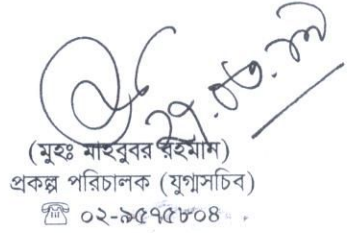 ২৭.০৩.
(মুহঃ মাহবুবর রহমান)
প্রকল্প পরিচালক (যুগ্মসচিব)
☎ ০২-৯৫৭৫৮০৪